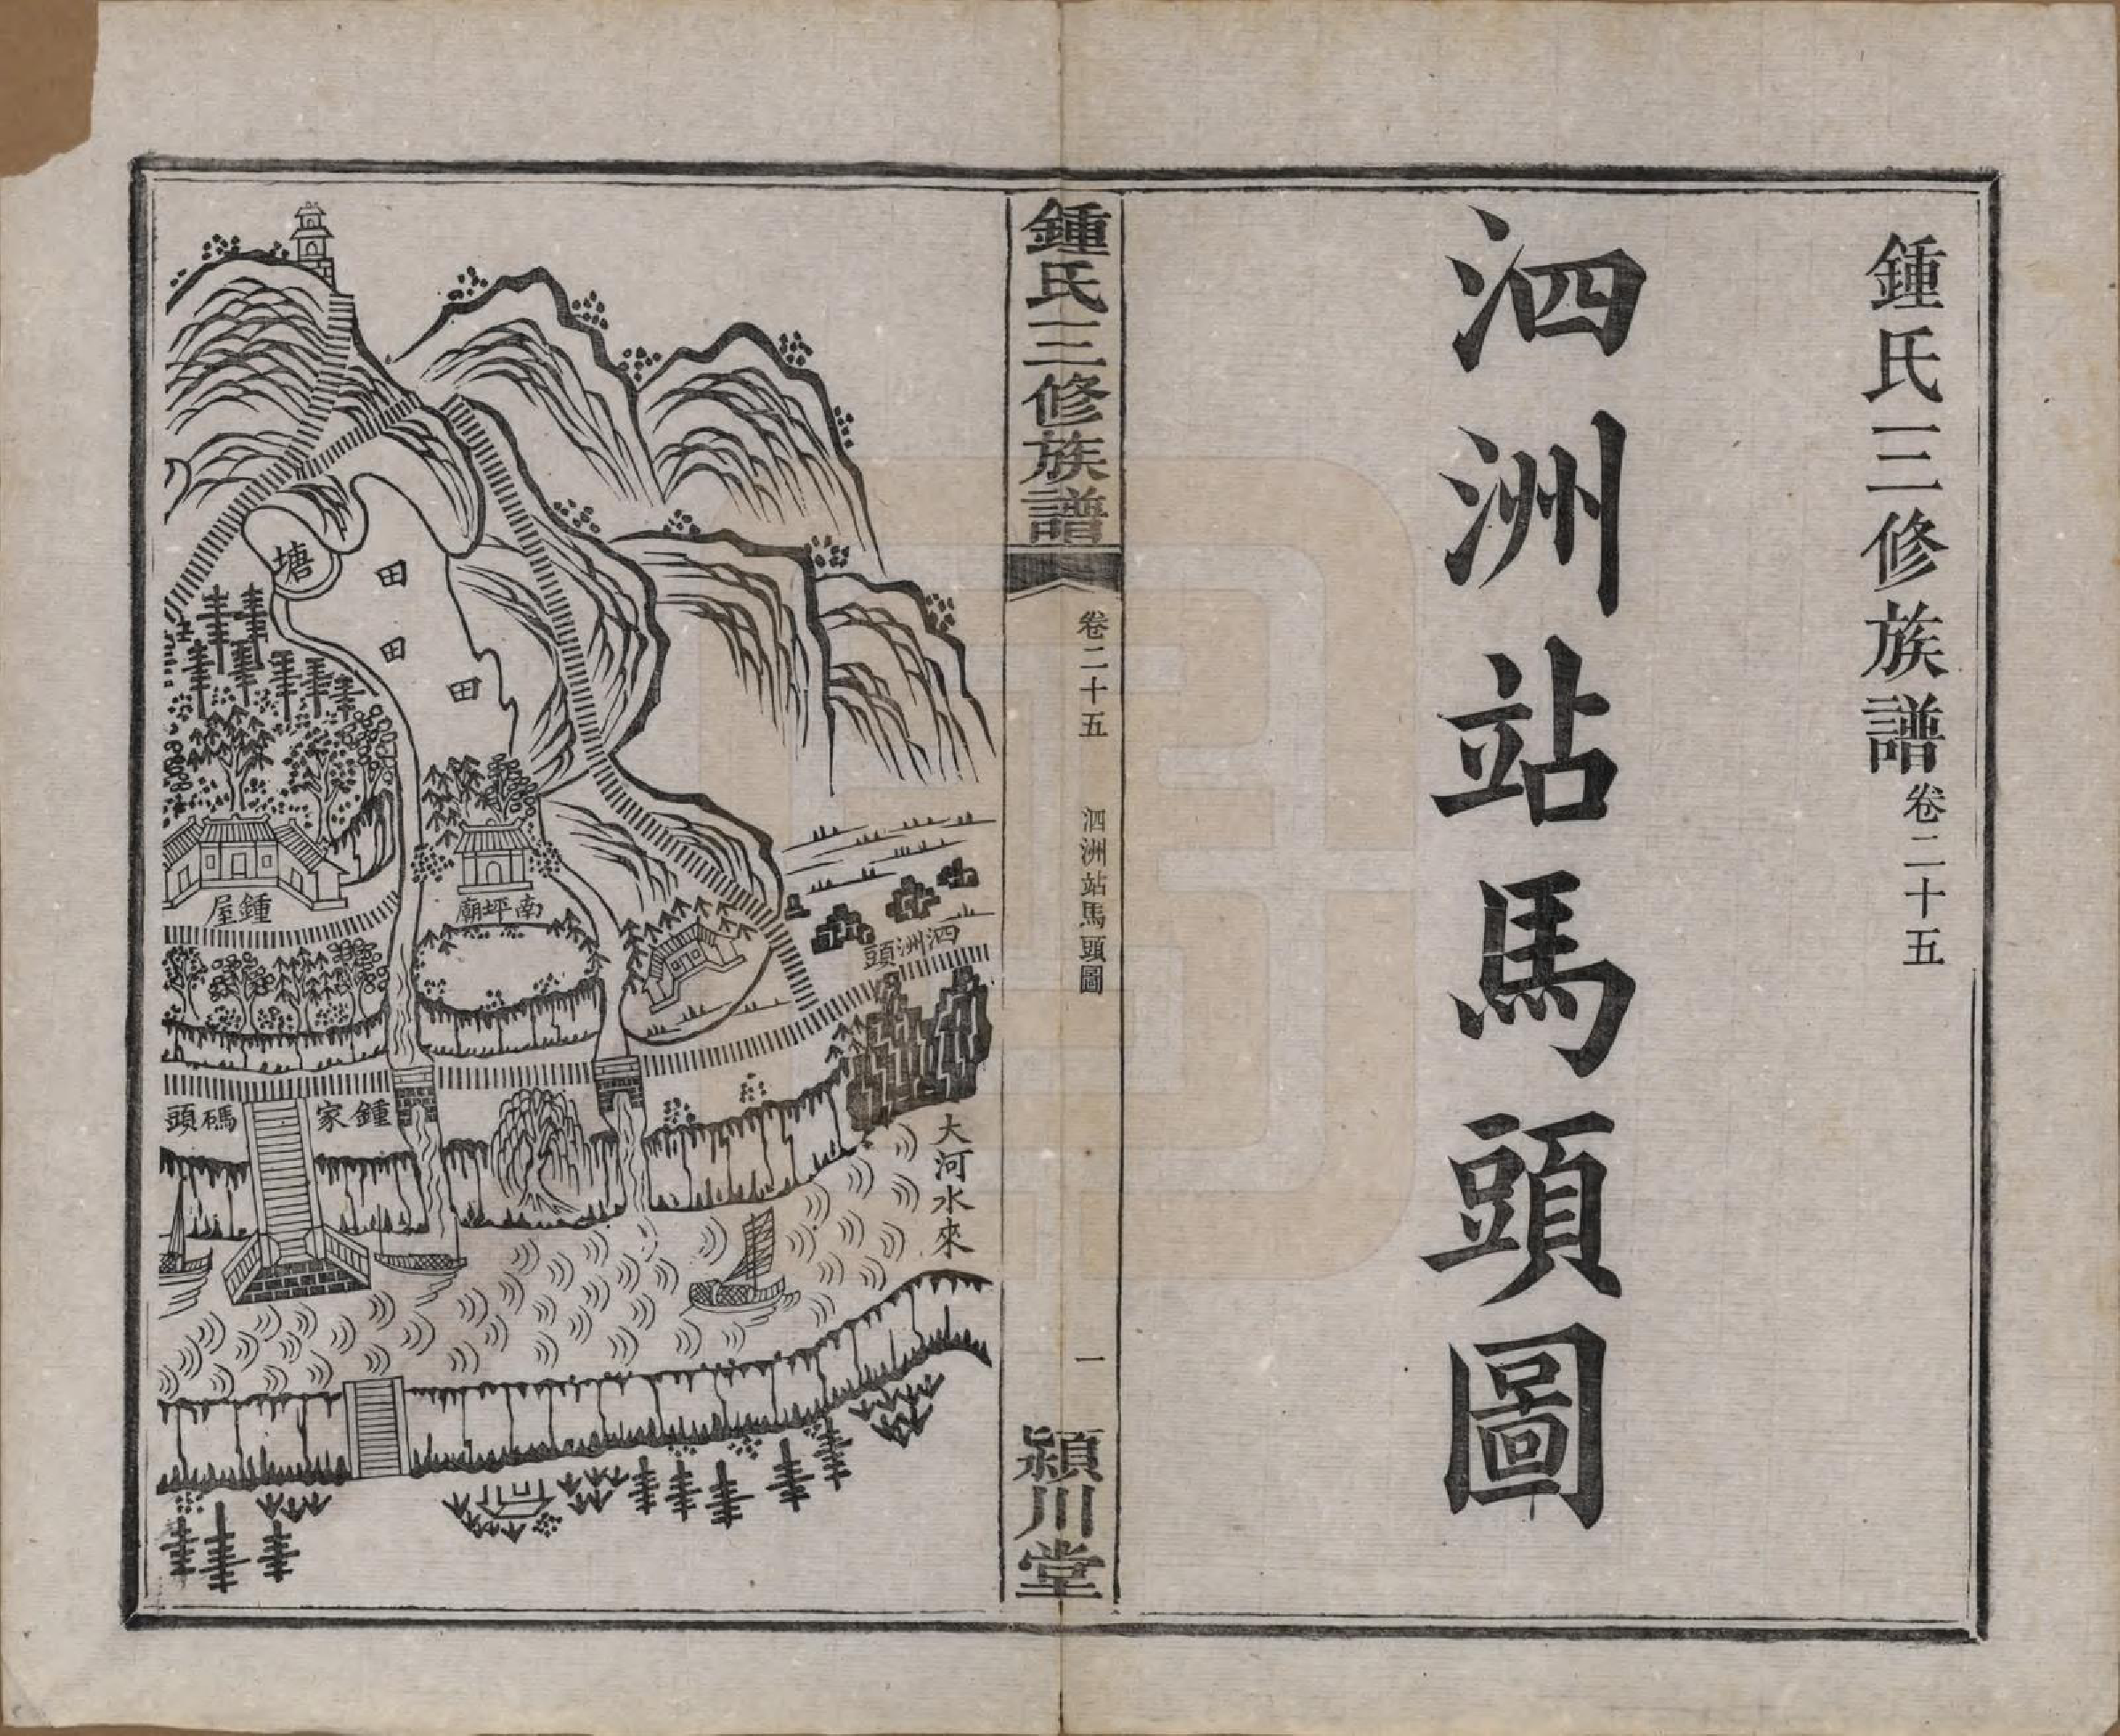 鍾氏三修族譜卷二十五
泗洲站馬頭圖
鍾氏三修族譜
卷二十五
泗洲站馬頭圖
一
潁川堂
塘
田
田
田
泗洲頭
南坪廟
鍾屋
鍾家碼頭
大河水來